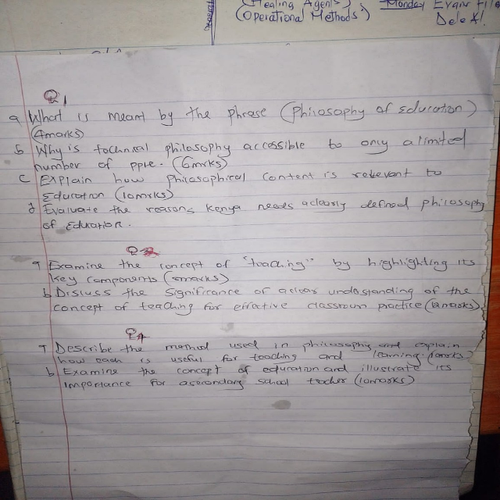 (Healing Agents)
(Operational Methods)
Monday Evans File
Delex!
Q1
a What is meant by the phrase (philosophy of education)
(4marks)
b Why is technical philosophy accessible to only a limited
number of pple. (6mrks)
c Explain how philosophical content is relevant to
Education (10mrks)
d Evaluate the reasons Kenya needs a clearly defined philosophy
of Education.
a Examine the concept of "teaching" by highlighting its
key components (8marks)
b Discuss the significance of a clear understanding of the
concept of teaching for effective classroom practice (12marks)
Q4
a Describe the method used in philosophy and explain
how each is useful for teaching and learning (10mrks)
b Examine the concept of education and illustrate its
Importance for a secondary school teacher (10marks)